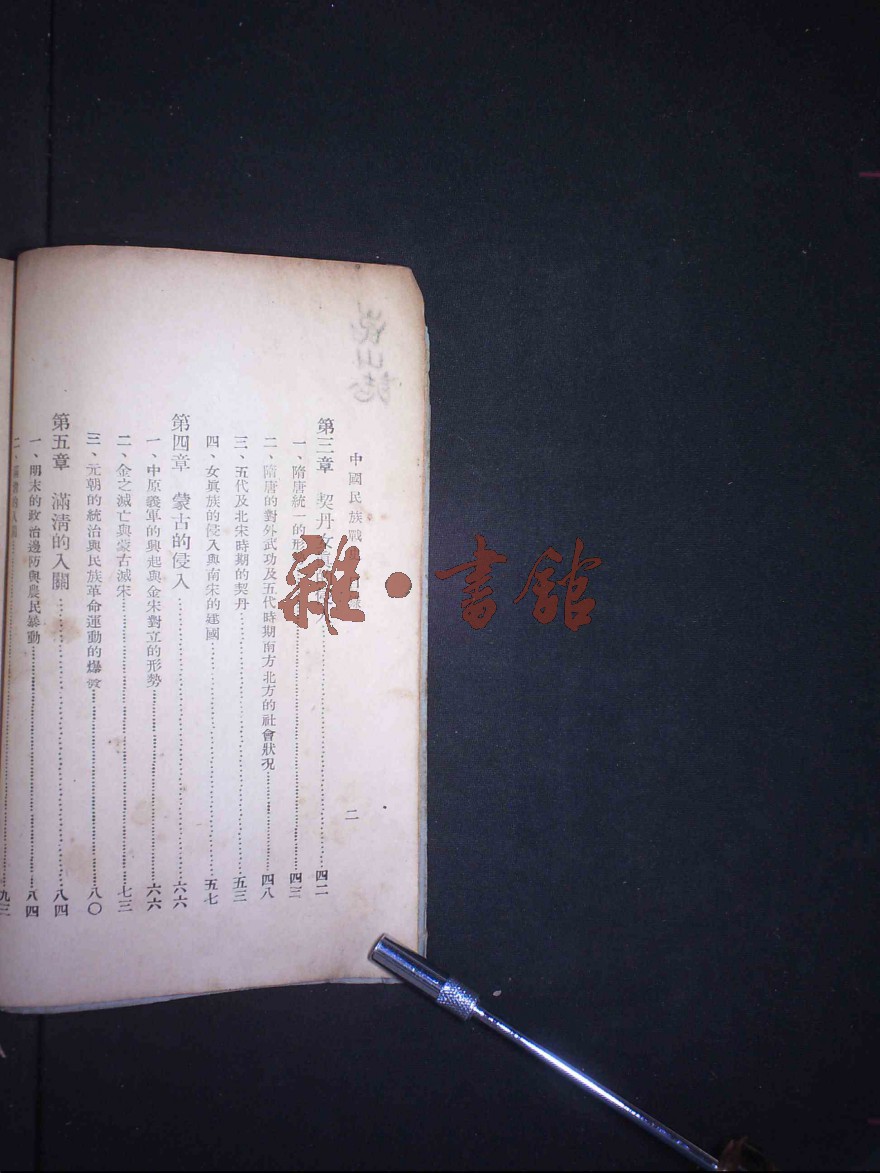 中國民族戰
二
第三章 契丹女眞
四二
一、隋唐統一的形
四三
二、隋唐的對外武功及五代時期南方北方的社會狀況……四八
三、五代及北宋時期的契丹……五三
四、女眞族的侵入與南宋的建國……五七
第四章 蒙古的侵入……六六
一、中原義軍的興起與金宋對立的形勢……六六
二、金之滅亡與蒙古滅宋……七三
三、元朝的統治與民族革命運動的爆發……八〇
第五章 滿清的入關……八四
一、明末的政治邊防與農民暴動……八四
九三
雜·書館